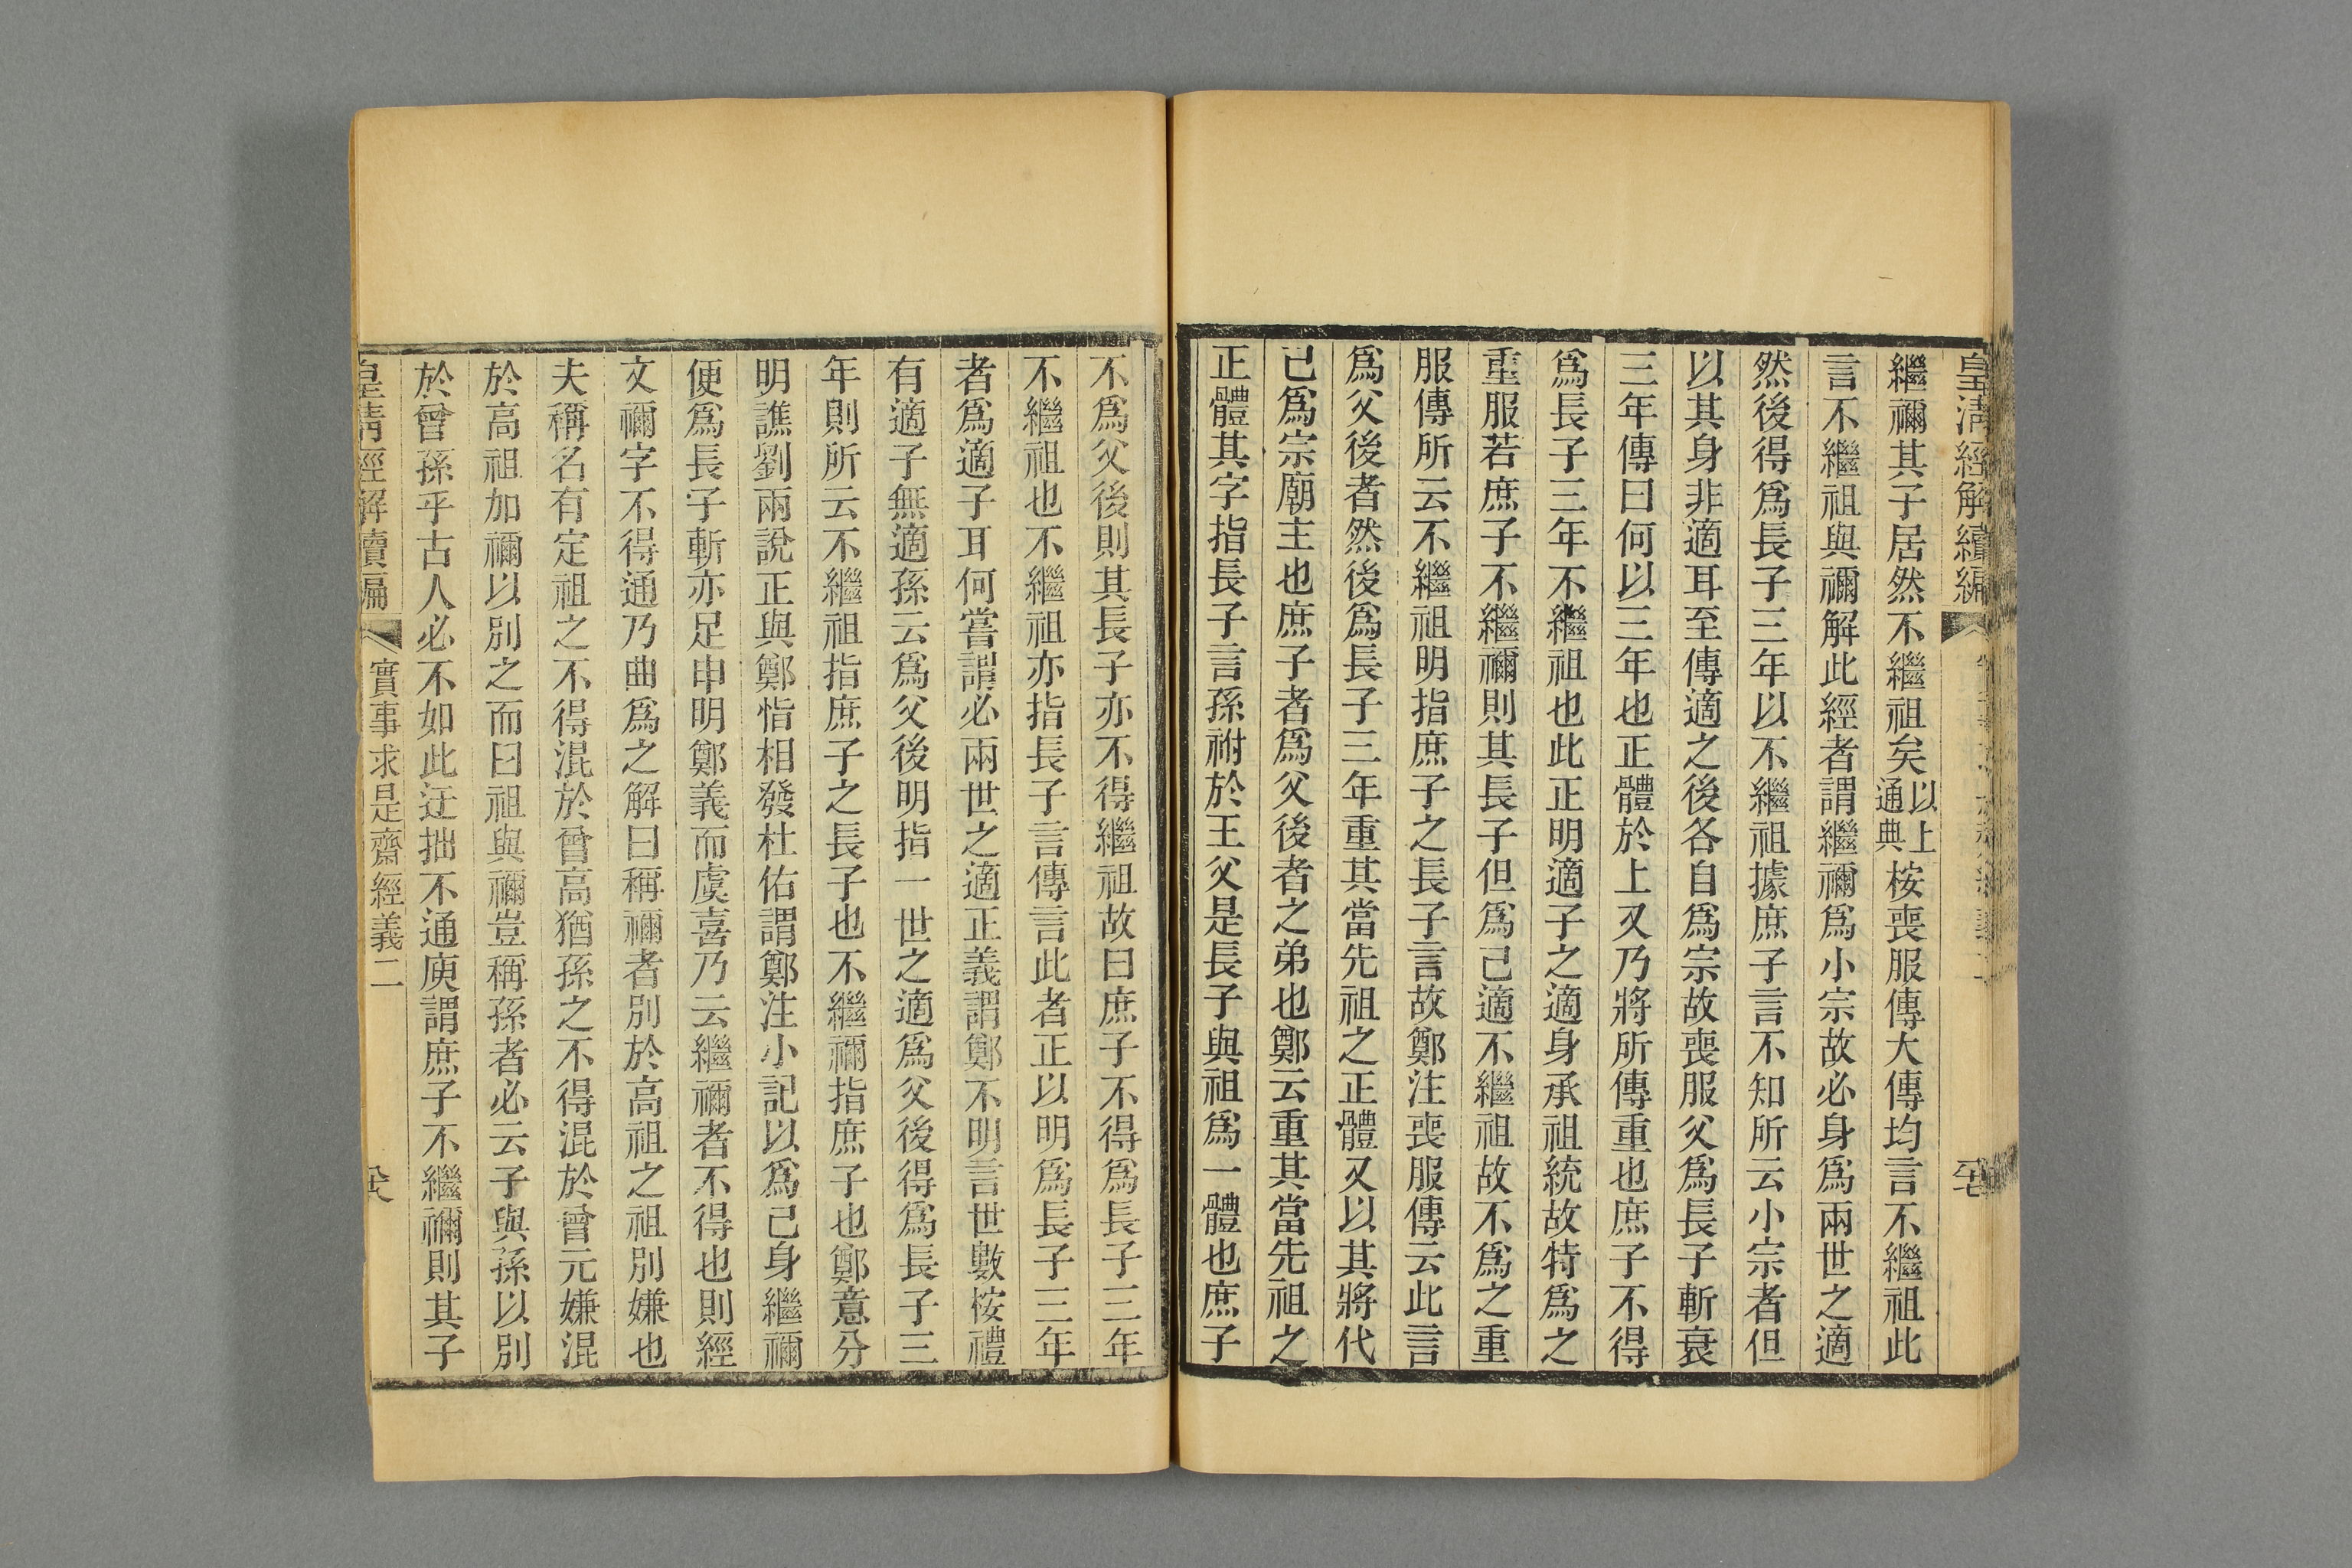 皇清經解續編
繼禰其子居然不繼祖矣以上通典桉喪服傳大傳均言不繼祖此
言不繼祖與禰解此經者謂繼禰爲小宗故必身爲兩世之適
然後得爲長子三年以不繼祖據庶子言不知所云小宗者但
以其身非適耳至傳適之後各自爲宗故喪服父爲長子斬衰
三年傳曰何以三年也正體於上又乃將所傳重也庶子不得
爲長子三年不繼祖也此正明適子之適身承祖統故特爲之
重服若庶子不繼禰則其長子但爲己適不繼祖故不爲之重
服傳所云不繼祖明指庶子之長子言故鄭注喪服傳云此言
爲父後者然後爲長子三年重其當先祖之正體又以其將代
己爲宗廟主也庶子者爲父後者之弟也鄭云重其當先祖之
正體其字指長子言孫祔於王父是長子與祖爲一體也庶子
不爲父後則其長子亦不得繼祖故曰庶子不得爲長子三年
不繼祖也不繼祖亦指長子言傳言此者正以明爲長子三年
者爲適子耳何嘗謂必兩世之適正義謂鄭不明言世數桉禮
有適子無適孫云爲父後明指一世之適爲父後得爲長子三
年則所云不繼祖指庶子之長子也不繼禰指庶子也鄭意分
明譙劉兩說正與鄭恉相發杜佑謂鄭注小記以爲己身繼禰
便爲長子斬亦足申明鄭義而虞喜乃云繼禰者不得也則經
文禰字不得通乃曲爲之解曰稱禰者別於高祖之祖別嫌也
夫稱名有定祖之不得混於曾高猶孫之不得混於曾元嫌混
於高祖加禰以別之而曰祖與禰豈稱孫者必云子與孫以別
於曾孫乎古人必不如此迂拙不通庾謂庶子不繼禰則其子
皇清經解續編
實事求是齋經義二